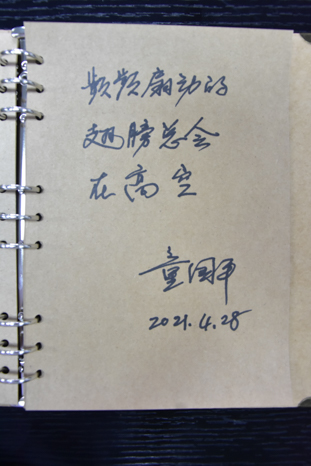 频频扇动的
翅膀总会
在高空
童国平
2021.4.28